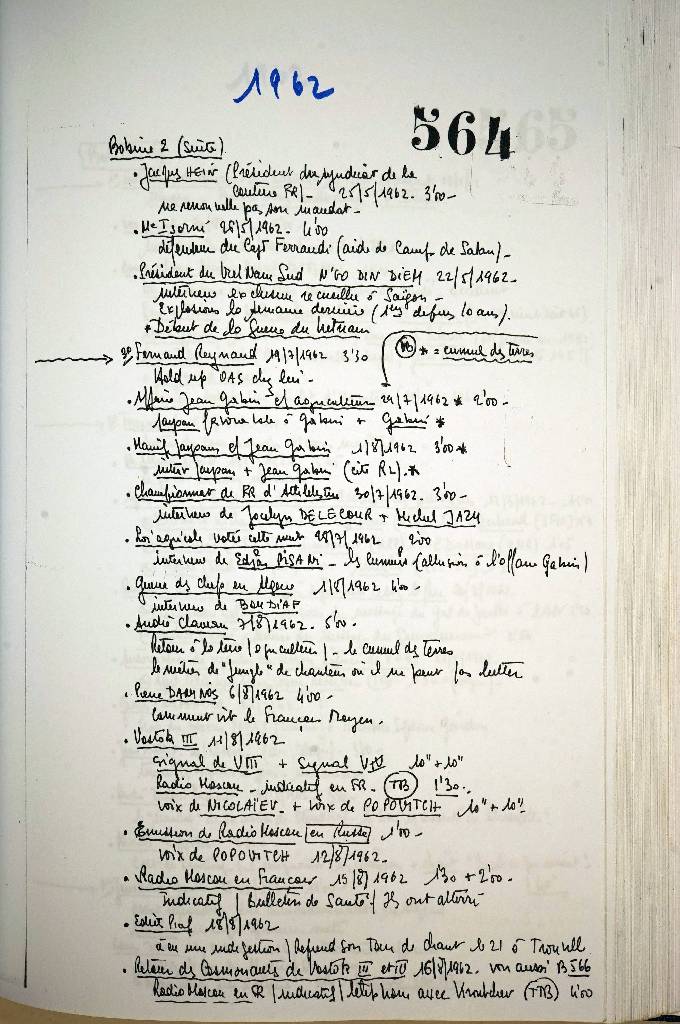 1962
564
Bobine 2 (suite)
. Jacques HEIM (Président du syndicat de la
couture FR) - 25/5/1962 - 3'00 -
ne renouvelle pas son mandat -
. Me Isorni 28/5/1962 - 4'00
défenseur du Capt Ferrandi (aide de Camp de Salan) -
. Président du Viet Nam Sud N'GO DIN DIEM 22/5/1962 -
interview exclusive recueillie à Saïgon -
Explosions la semaine dernière (1ères depuis 10 ans).
* Début de la Guerre du Vietnam
Fernand Raynaud 19/7/1962 3'30
NB * = cumul des terres
Hold up OAS chez lui -
. Affaire Jean Gabin et agriculteurs 29/7/1962 * 2'00 -
paysan favorable à Gabin + Gabin *
. Manif paysans et Jean Gabin 1/8/1962 3'00 *
inter paysan + Jean Gabin (cite RL). *
. Championnat de FR d'Athlétisme 30/7/1962 - 3'00 -
interview de Jocelyn DELECOUR + Michel JAZY
. Loi agricole votée cette nuit 28/7/1962 2'00
interview de Edgar PISANI - les cumuls (allusion à l'affaire Gabin)
. Guerre des chefs en Algérie 1/8/1962 4'00 -
interview de BOUDIAF
. André Claveau 7/8/1962 - 5'00 -
Retour à la terre (agriculteur) - le cumul des terres
le métier de "Jungle" de chanteur où il ne peut pas lutter
. Pierre DANINOS 6/8/1962 4'00 -
comment vit le Français Moyen.
. Vostok III 11/8/1962
signal de VIII + signal VIV 10" + 10"
Radio Moscou - indicatif en FR - (TB) 1'30 -
voix de NICOLAÏEV - + voix de POPOVITCH 10" + 10"
. Emission de Radio Moscou en Russe 1'00 -
voix de POPOVITCH 12/8/1962 -
. Radio Moscou en Français 15/8/1962 1'30 + 2'00 -
indicatif / Bulletin de Santé / Ils ont atterri
. Edith Piaf 18/8/1962
a eu une indigestion / Reprend son Tour de chant le 21 à Trouville
. Retour des Cosmonautes de Vostok III et IV 16/8/1962 - voir aussi B 566
Radio Moscou en FR / indicatif / téléphone avec Kroutchev (TTB) 4'00